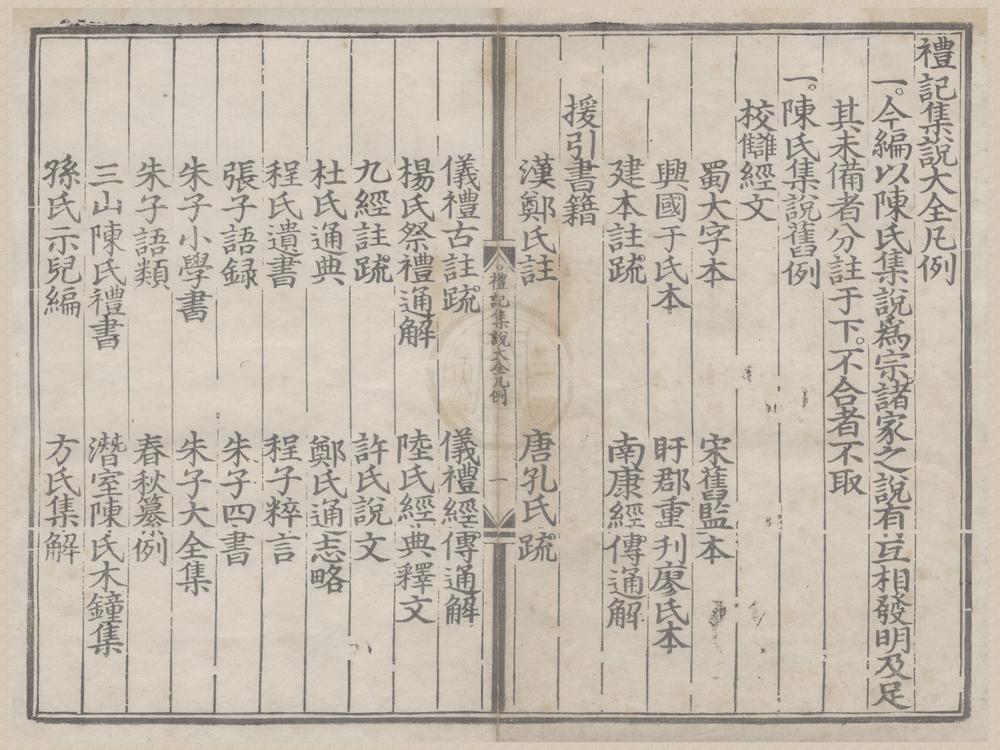 禮記集說大全凡例
一。今編以陳氏集說爲宗。諸家之說有互相發明及足
其未備者分註于下。不合者不取
一。陳氏集說舊例
校讎經文
蜀大字本 宋舊監本
興國于氏本 盱郡重刋廖氏本
建本註䟽 南康經傳通解
援引書籍
漢鄭氏註 唐孔氏䟽
禮記集說大全凡例 一
儀禮古註䟽 儀禮經傳通解
楊氏祭禮通解 陸氏經典釋文
九經註䟽 許氏說文
杜氏通典 鄭氏通志略
程氏遺書 程子粹言
張子語録 朱子四書
朱子小學書 朱子大全集
朱子語類 春秋纂例
三山陳氏禮書 潛室陳氏木鐘集
孫氏示兒編 方氏集解